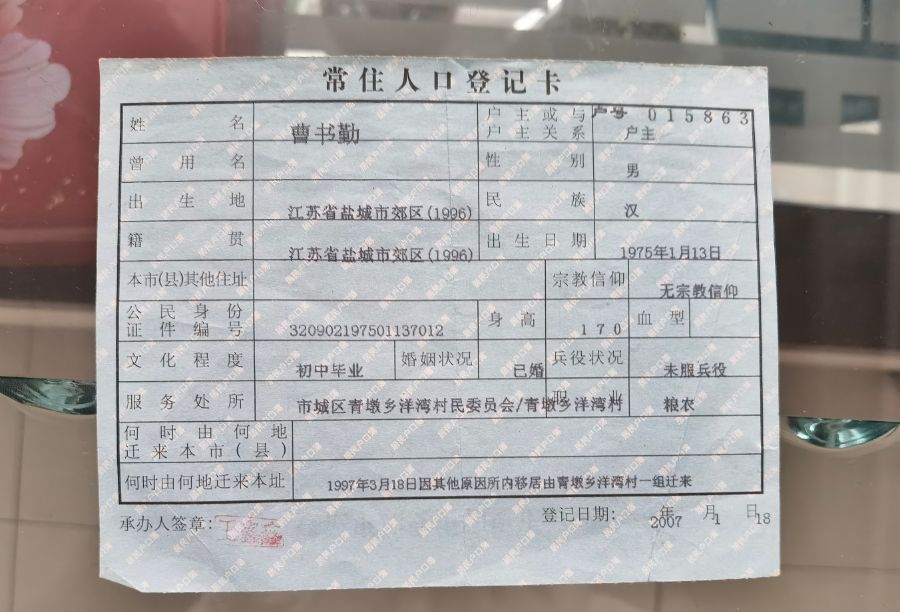 常住人口登记卡
姓名 曹书勤 户主或与户主关系 户号 015863 户主
曾用名 性别 男
出生地 江苏省盐城市郊区(1996) 民族 汉
籍贯 江苏省盐城市郊区(1996) 出生日期 1975年1月13日
本市(县)其他住址 宗教信仰 无宗教信仰
公民身份证件编号 320902197501137012 身高 170 血型
文化程度 初中毕业 婚姻状况 已婚 兵役状况 未服兵役
服务处所 市城区青墩乡洋湾村民委员会/青墩乡洋湾村 职业 粮农
何时由何地迁来本市(县)
何时由何地迁来本址 1997年3月18日因其他原因所内移居由青墩乡洋湾村一组迁来
承办人签章: 登记日期: 2007年1月18日